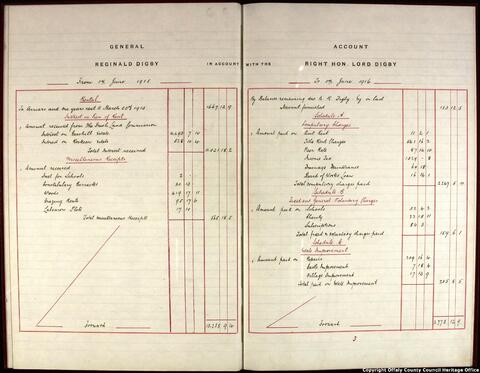 GENERAL
REGINALD DIGBY
IN ACCOUNT
From 1st June 1915
Rental
To Arrears and one years rent to March 25th 1915
1667 12 9
Interest in lieu of Rent
Amount received from the Irish Land Commission
Interest on Geashill Estate
Interest on Estate
Total Interest received
Miscellaneous Receipts
Amount received
Rent for Schools
2 - -
Constabulary Barracks
Woods
419 17 11
Grazing Rents
95 17 6
Labourers Plots
17 10
Total miscellaneous Receipts
565 18 5
Forward
ACCOUNT
WITH THE
RIGHT HON. LORD DIGBY
To 1st June 1916
By Balance remaining due to R. Digby by on last
Account furnished
Schedule A
Compulsory Charges
Amount paid on Quit Rent
11 2 1
Tithe Rent Charges
Poor Rate
Income Tax
1029 - 8
Drainage Maintenance
Board of Works Loan
16 14 1
Total compulsory charges paid
Schedule B
Fixed and General Voluntary Charges
Amount paid on Schools
Charity
23 18 11
Subscriptions
Total fixed & voluntary charges paid
Schedule C
Estate Improvement
Amount paid on Repairs
209 16 4
Estate Improvement
7 18 4
Village Improvement
17 13 9
Total paid on Estate Improvement
Forward
2778 12 9
3
Copyright Offaly County Council Heritage Office